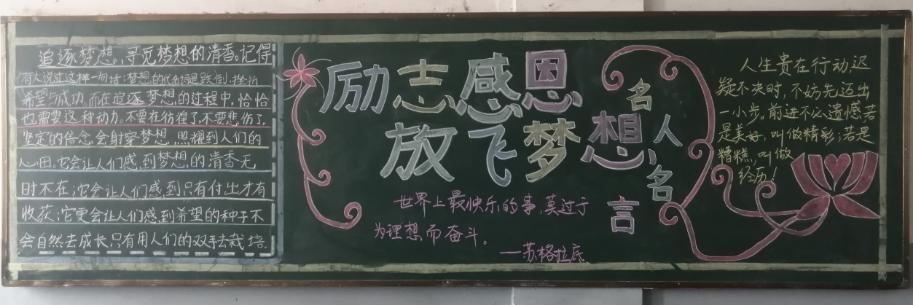 追逐梦想,寻觅梦想的清香。记得
有人说过这样一句话:梦想的
希望与成功,而在追逐梦想的过程中,恰恰
也需要这种动力,不要在彷徨了,不要悲伤了,
坚定的信念会射穿梦想,照耀到人们的
心田,它会让人们感到梦想的清香无
时不在;它会让人们感到只有付出才有
收获;它更会让人们感到希望的种子不
会自然去成长,只有用人们的双手去栽培.
励志感恩
放飞梦想
名人名言
世界上最快乐的事,莫过于
为理想而奋斗。
——苏格拉底
人生贵在行动,迟
疑不决时,不妨先迈出
一小步。前进不必遗憾,若
是美好,叫做精彩;若是
糟糕,叫做
经历!